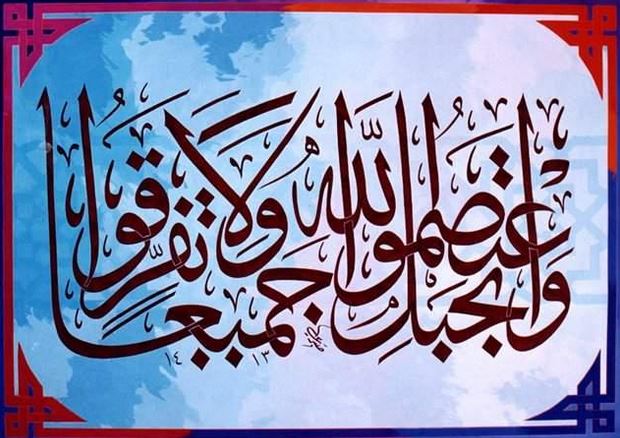 وَاعْتَصِمُوا بِحَبْلِ اللَّهِ جَمِيعًا وَلَا تَفَرَّقُوا
١٤١٣